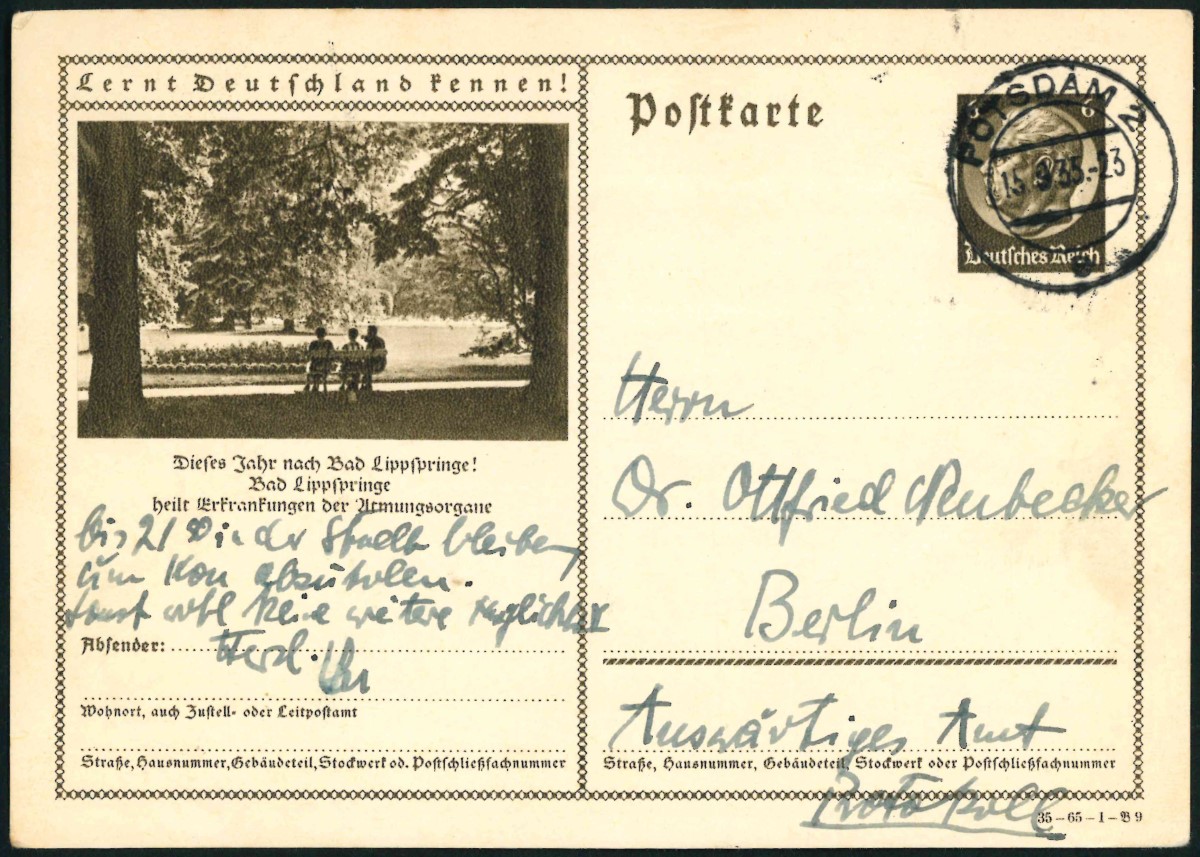 Lernt Deutschland kennen!
Dieses Jahr nach Bad Lippspringe!
Bad Lippspringe
heilt Erkrankungen der Atmungsorgane
bis 21 in der Stadt bleiben
um abzuholen.
sonst wohl keine weitere Möglichkeit
Absender:
Herzl.
Wohnort, auch Zustell- oder Leitpostamt
Straße, Hausnummer, Gebäudeteil, Stockwerk od. Postschließfachnummer
Postkarte
POTSDAM 2
15.9.35.-23
6 6
Deutsches Reich
Herrn
Dr. Ottfried Neubecker
Berlin
Auswärtiges Amt
Straße, Hausnummer, Gebäudeteil, Stockwerk oder Postschließfachnummer
Protokoll
35-65-1-B 9